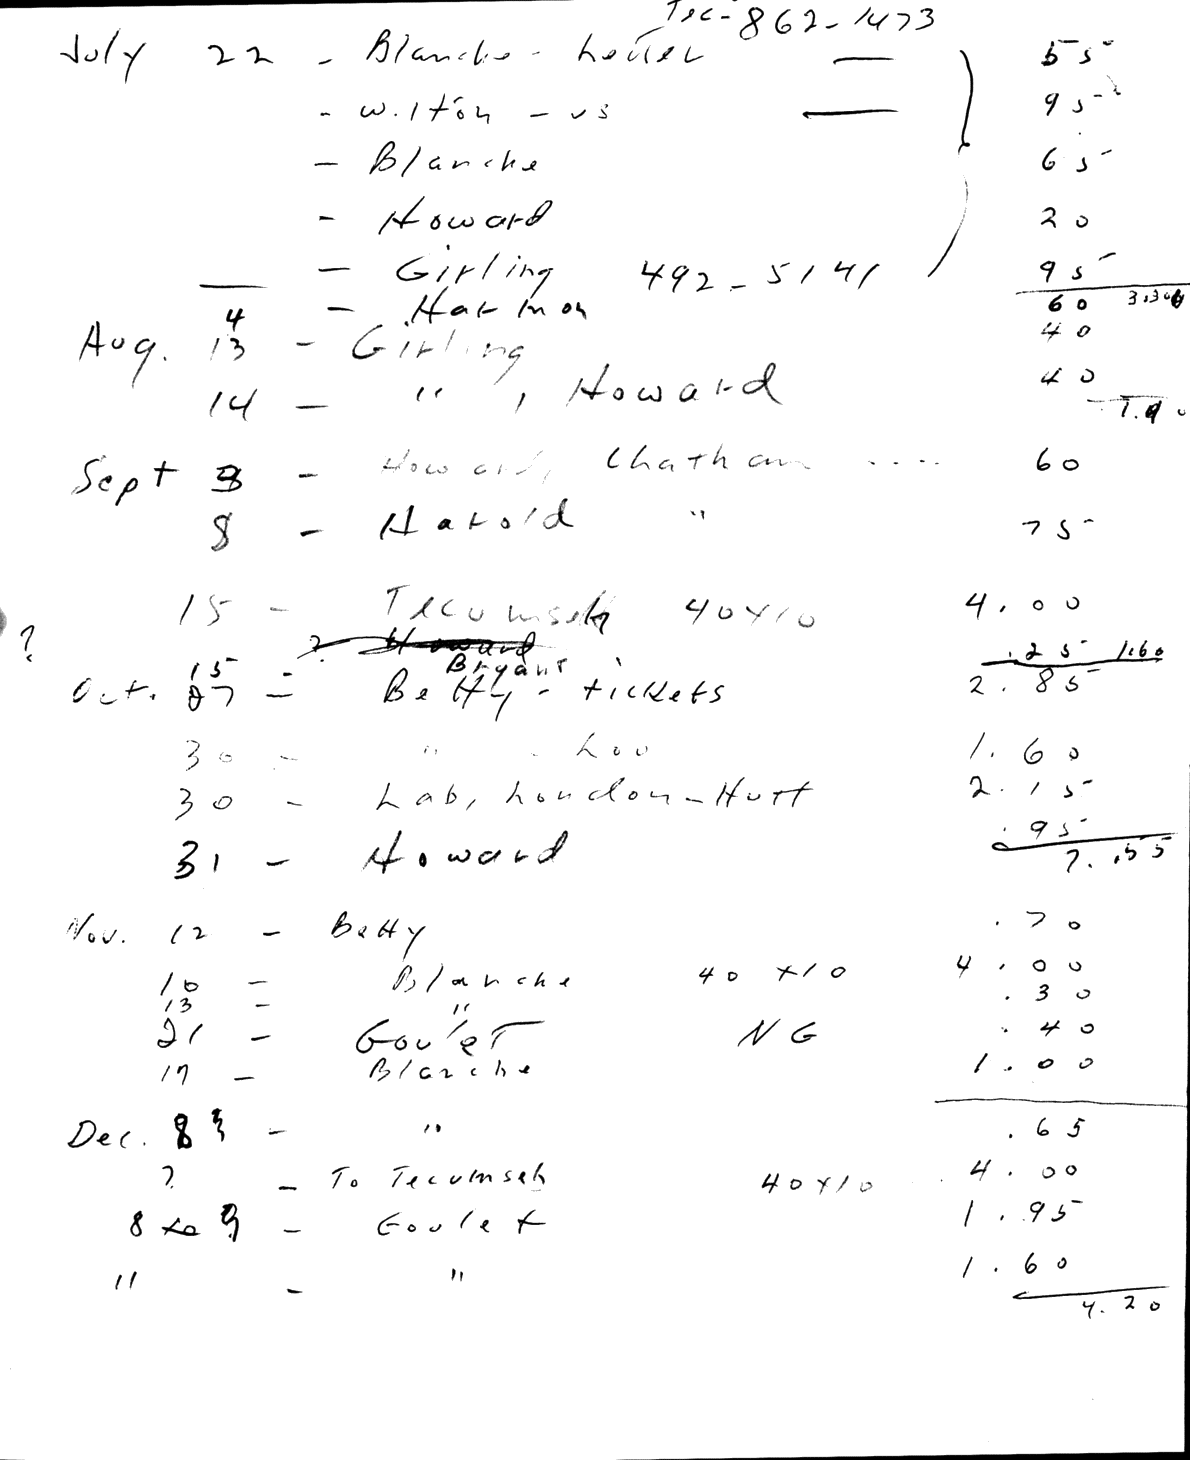 Tec- 862-1473
July 22 - Blanche - Letter — 55
- Wilton - us — 95
- Blanche 65
- Howard 20
- Girling 492-5141 95
4 - Harmon 60 3.30
Aug. 13 - Girling 40
14 - " , Howard 40
1.40
Sept 3 - Howard, Chatham .... 60
8 - Harold " 75
15 - Tecumseh 40x10 4.00
? ? Howard .25 1.60
15 - Bryant
Oct. 27 - Betty - tickets 2.85
30 - " - Lou 1.60
30 - Lab, London - Hutt 2.15
31 - Howard .95
7.55
Nov. 12 - Betty .70
10 - Blanche 40 x10 4.00
13 - " .30
21 - Goulet NG .40
17 - Blanche 1.00
Dec. 8 - " .65
? - To Tecumseh 40x10 4.00
8 to 9 - Goulet 1.95
" - " 1.60
4.20